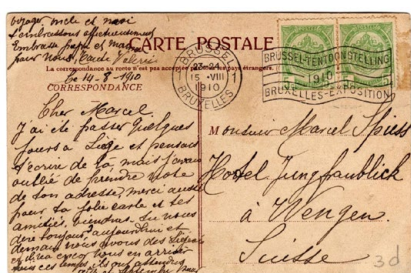 voyage, oncle et moi
t'embrassons affectueusement
Embrasse papa et maman
pour nous. Tante
le 14-8-1910
CARTE POSTALE
La correspondance au recto n'est pas acceptée par tous les pays étrangers.
CORRESPONDANCE
BRUSSEL
23-24
15 VIII
1910
1
BRUXELLES
BRUSSEL-TENTOONSTELLING
1910
BRUXELLES-EXPOSITION
Cher Marcel.
J'ai été passer quelques
jours à Liège et pensais
t'écrire de là, mais j'avais
oublié de prendre note
de ton adresse, merci aussi
pour ta jolie carte et tes
amitiés,
toujours aujourd'hui et
demain nous avons des
Monsieur Marcel Spiess
Hotel Jungfraublick
à Wengen
Suisse
3d